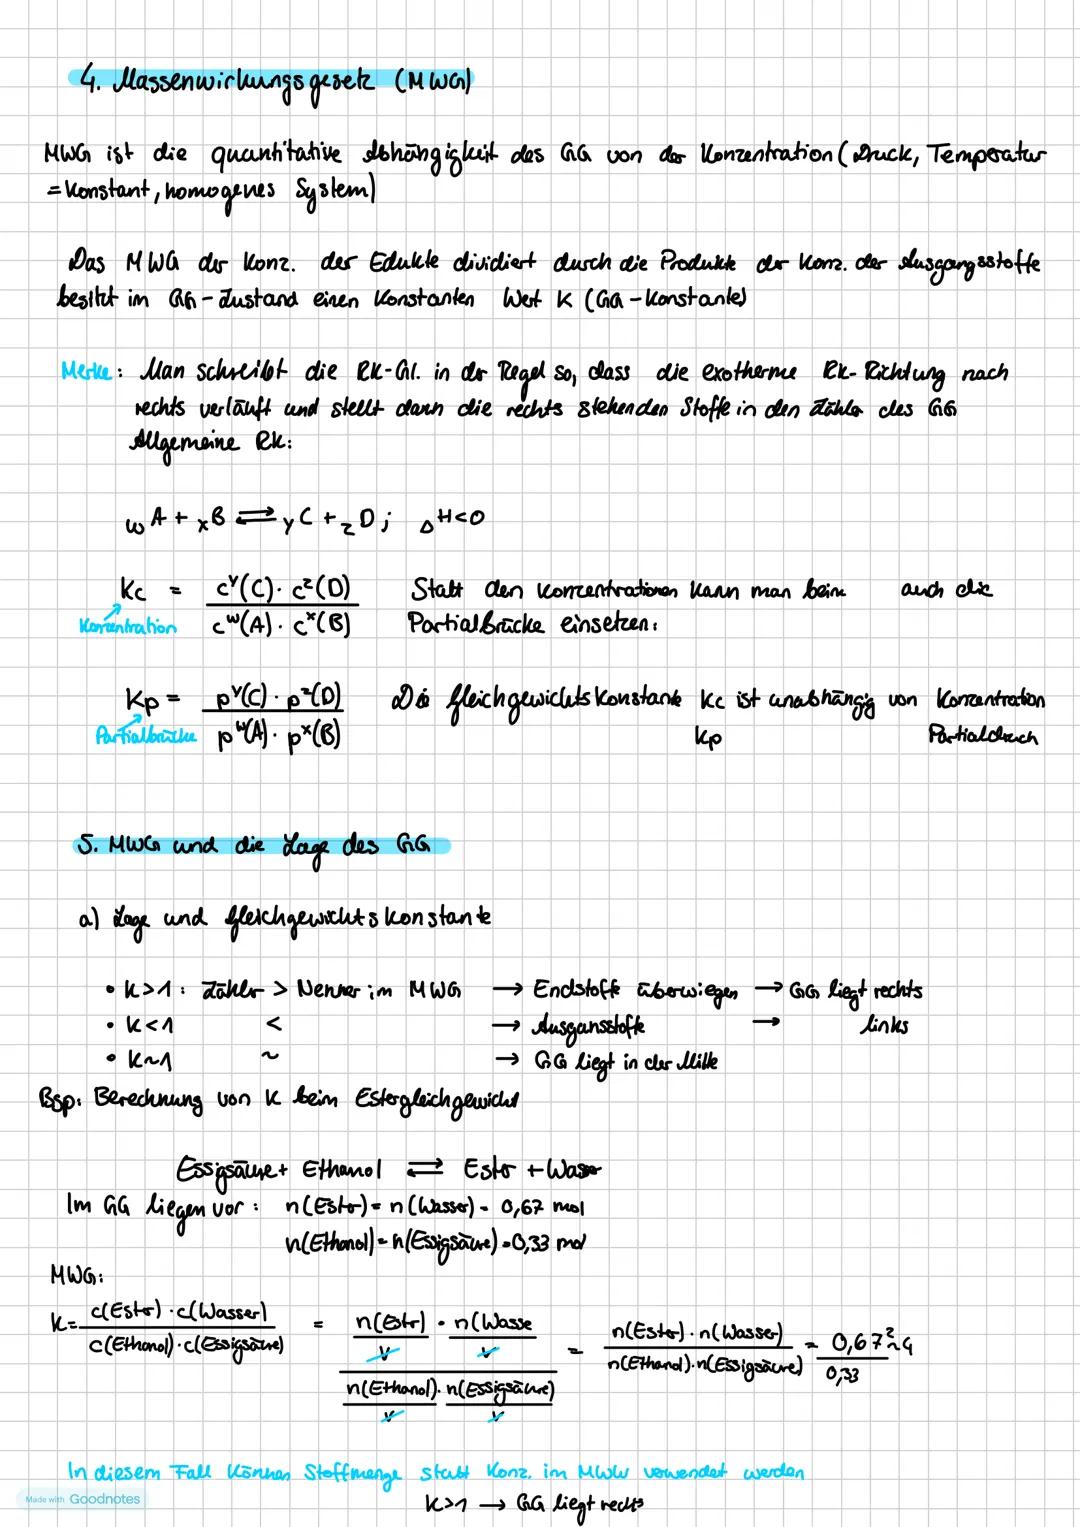 4. Massenwirkungsgesetz (MWG)
MWG ist die quantitative Abhängigkeit des GG von der Konzentration (Druck, Temperatur
= konstant, homogenes System)
Das MWG der Konz. der Edukte dividiert durch die Produkte der Konz. der Ausgangsstoffe
besitzt im GG-Zustand einen konstanten Wert K (GG-Konstante)
Merke: Man schreibt die RK-Gl. in der Regel so, dass die exotherme RK-Richtung nach
rechts verläuft und stellt dann die rechts stehenden Stoffe in den Zähler des GG
Allgemeine RK:
wA + xB ⇌ yC + zD; ΔH<0
Kc = c^y(C) · c^z(D) / c^w(A) · c^x(B) Statt den Konzentrationen kann man beim auch die
Konzentration Partialbrücke einsetzen:
Kp = p^y(C) · p^z(D) / p^w(A) · p^x(B) Die Gleichgewichtskonstante Kc ist unabhängig von Konzentration
Partialbrücke Kp Partialdruch
5. MWG und die Lage des GG
a) Lage und Gleichgewichtskonstante
• K>1: Zähler > Nenner im MWG → Endstoffe überwiegen → GG liegt rechts
• K<1 < → Ausgansstoffe → links
• K~1 ~ → GG liegt in der Mitte
Bsp: Berechnung von K beim Estergleichgewicht
Essigsäure + Ethanol ⇌ Ester + Wasser
Im GG liegen vor: n(Ester) = n(Wasser) = 0,67 mol
n(Ethanol) = n(Essigsäure) = 0,33 mol
MWG:
K = c(Ester) · c(Wasser) / c(Ethanol) · c(Essigsäure) = n(Ester)/V · n(Wasse/V / n(Ethanol)/V · n(Essigsäure)/V = n(Ester) · n(Wasser) / n(Ethanol) · n(Essigsäure) = 0,67² / 0,33 ~ 4
In diesem Fall können Stoffmenge statt Konz. im MWW verwendet werden
Made with Goodnotes
K>1 → GG liegt rechts